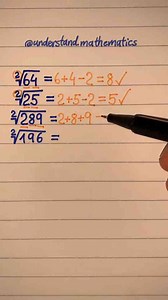 @understand.mathematics
²√64 = 6+4-2=8✓
²√25 = 2+5-2=5✓
²√289 = 2+8+9-
²√196 =